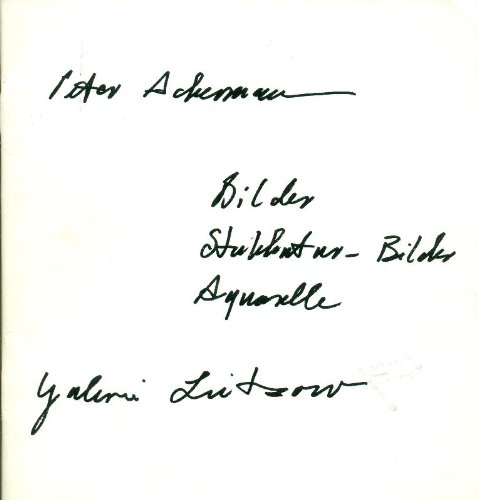 Peter Ackermann
Bilder
Stukkatur-Bilder
Aquarelle
Galerie Lietzow